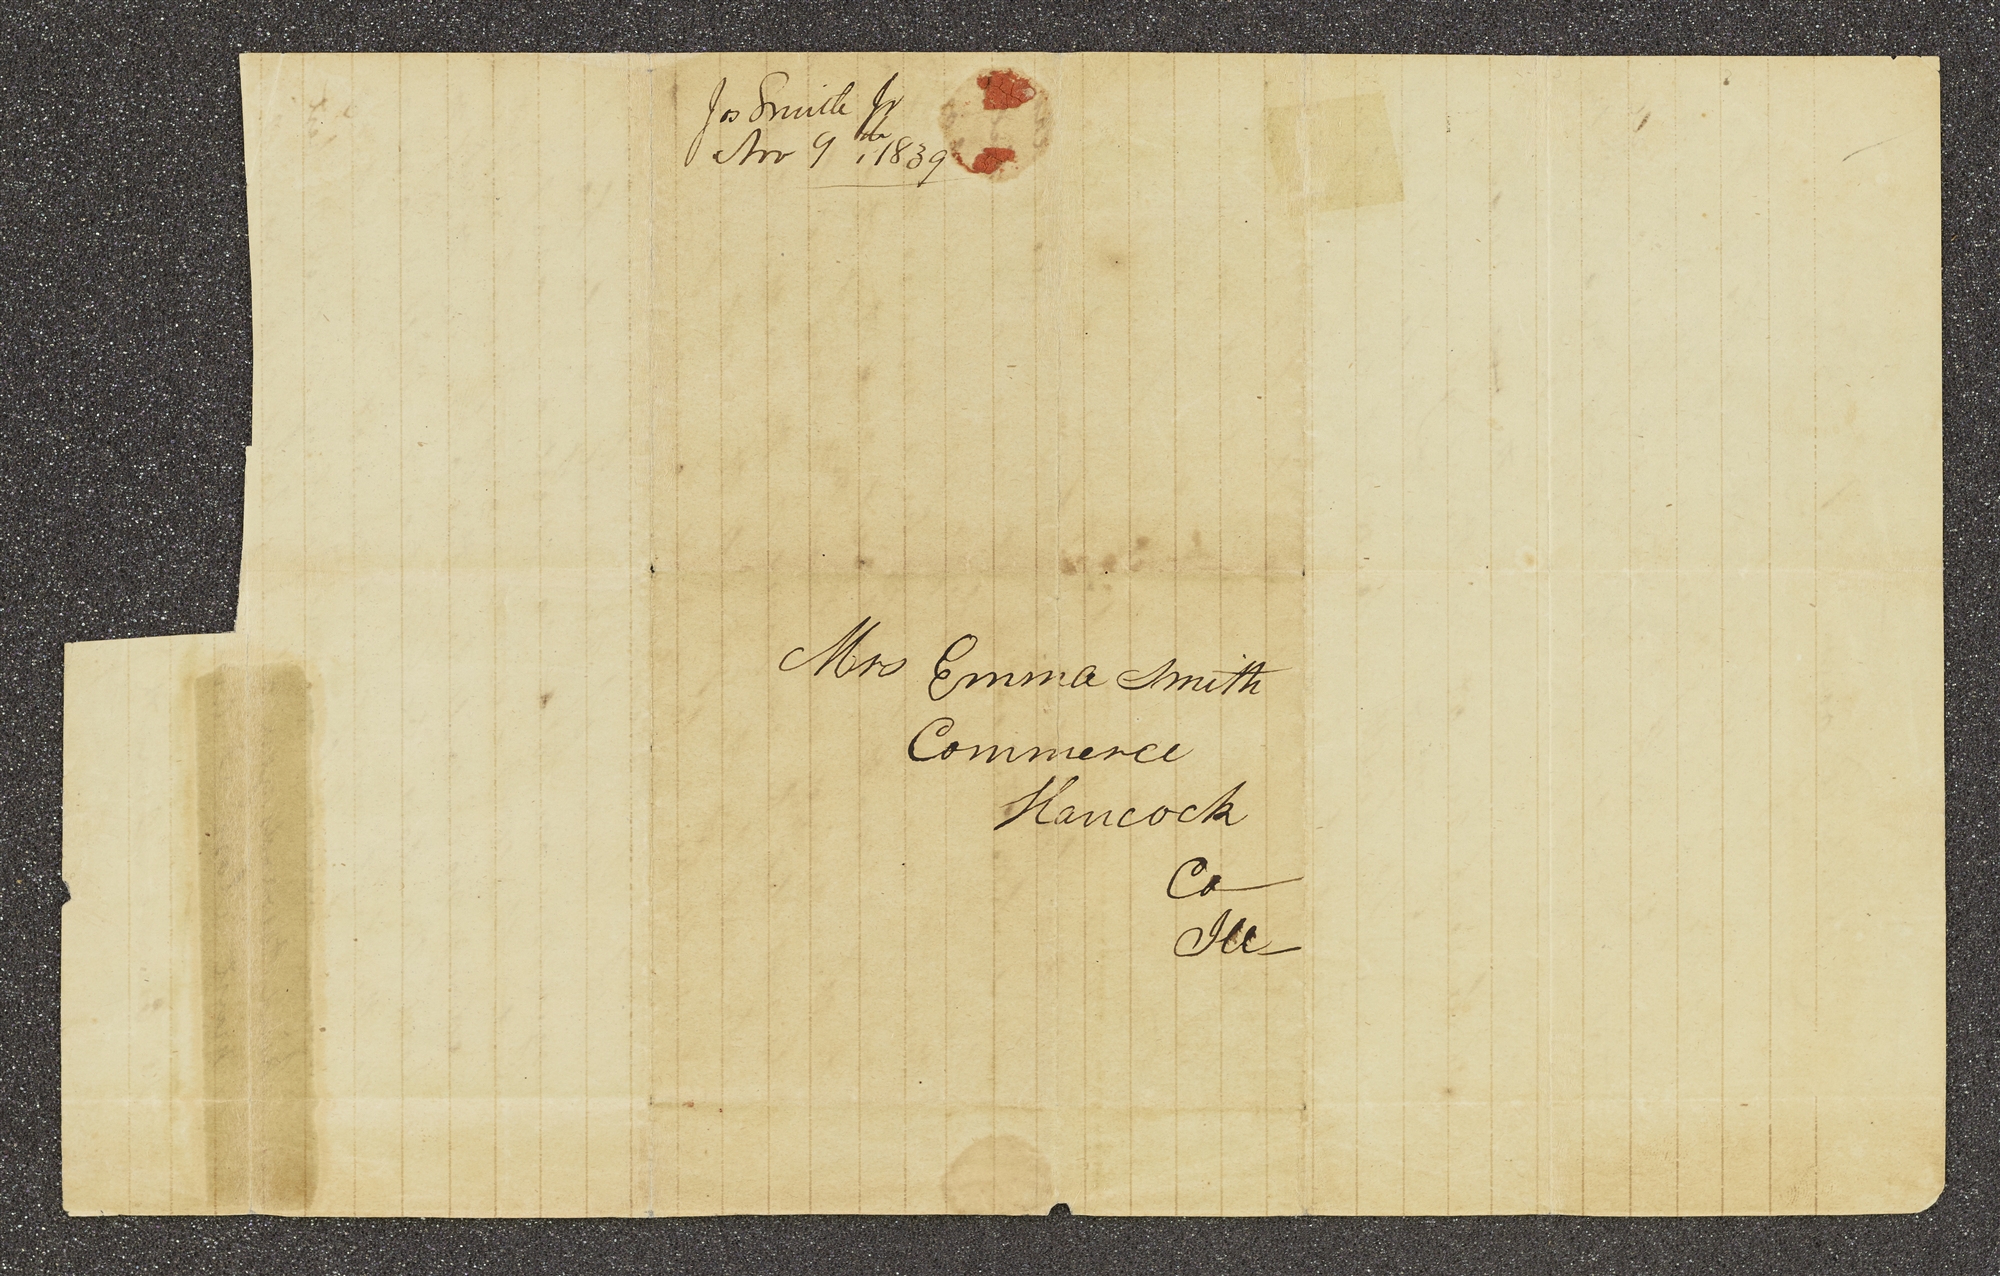 Jos Smith Jr
Nov 9th, 1839
Mrs Emma Smith
Commerce
Hancock
Co
Ill